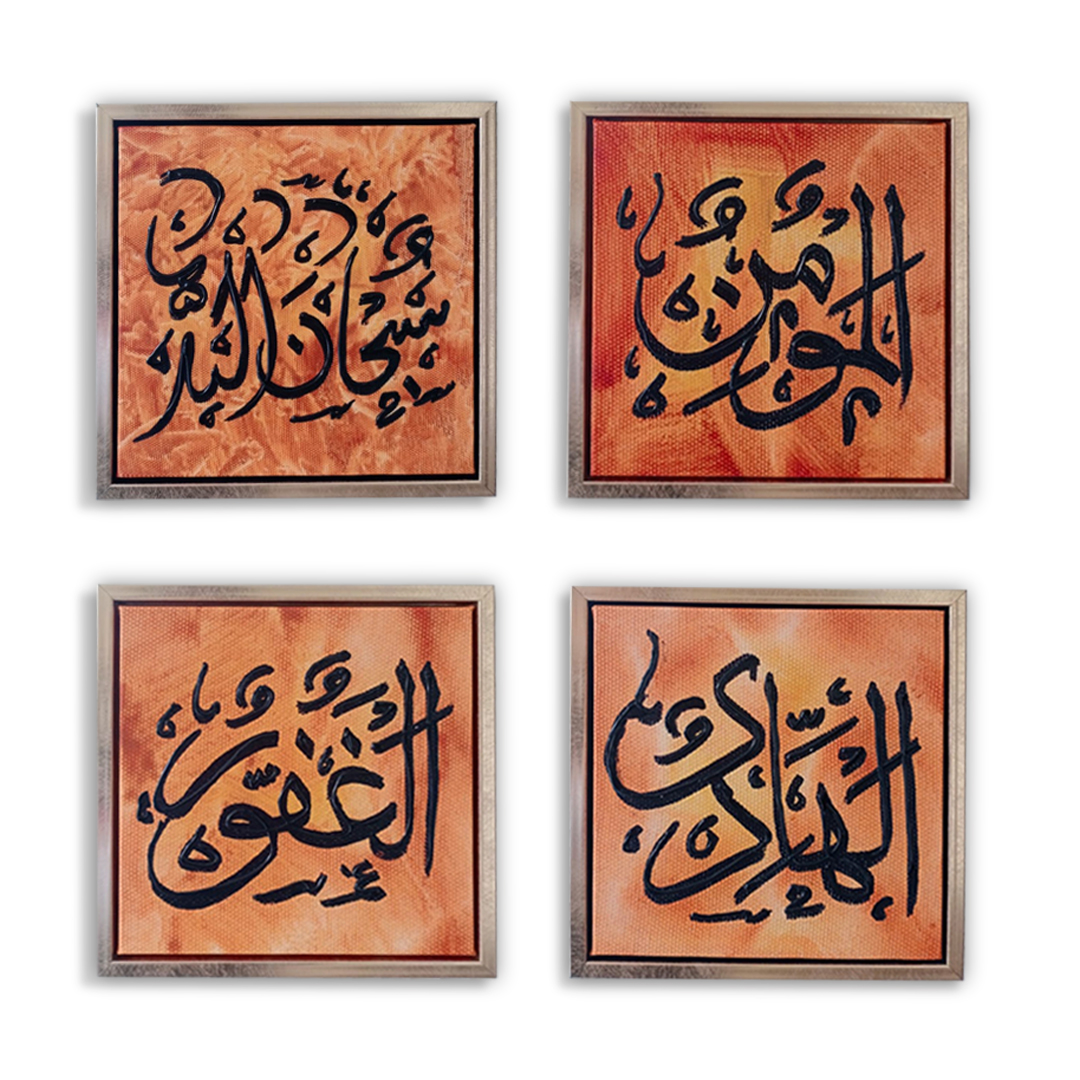 سُبْحَانَ اللّٰه
المُؤْمِنُ
الغَفُورُ
الهَادِي